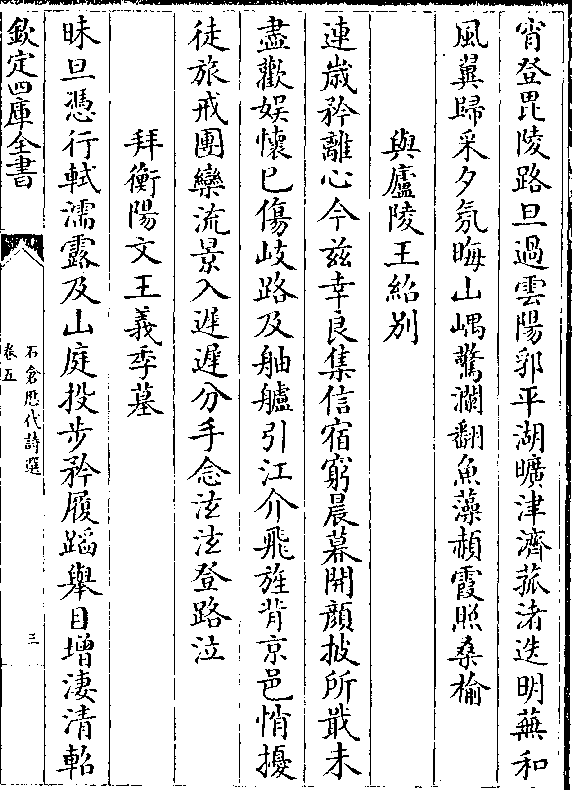 宵登毘陵路旦過雲陽郛平湖曠津濟菰渚迭明蕪和
風翼歸采夕氛晦山嵎驚瀾翻魚藻赬霞照桑榆
與廬陵王紹别
連歲矜離心今兹幸良集信宿窮晨暮開顔披所戢未
盡歡娱懷已傷岐路及舳艫引江介飛旌背京邑悄擾
徒旅戒團欒流景入遲遲分手念泫泫登路泣
拜衡陽文王義季墓
昧旦憑行軾濡露及山庭投步矜履蹈舉目增凄清軺
欽定四庫全書
石倉歷代詩選
卷五
三